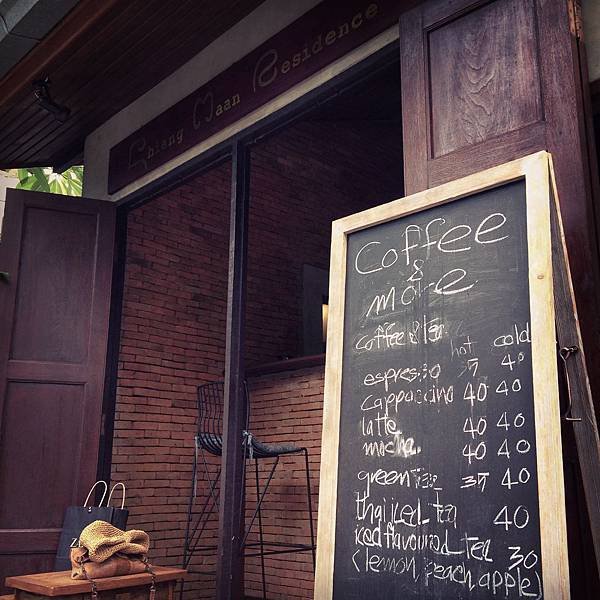 Chieng Maan Residence
Coffee
&
more
coffee & tea
hot cold
espresso 35 40
cappuccino 40 40
latte 40 40
mocha 40 40
green tea 35 40
thai iced tea 40
iced flavoured tea 30
(lemon peach apple)
Z